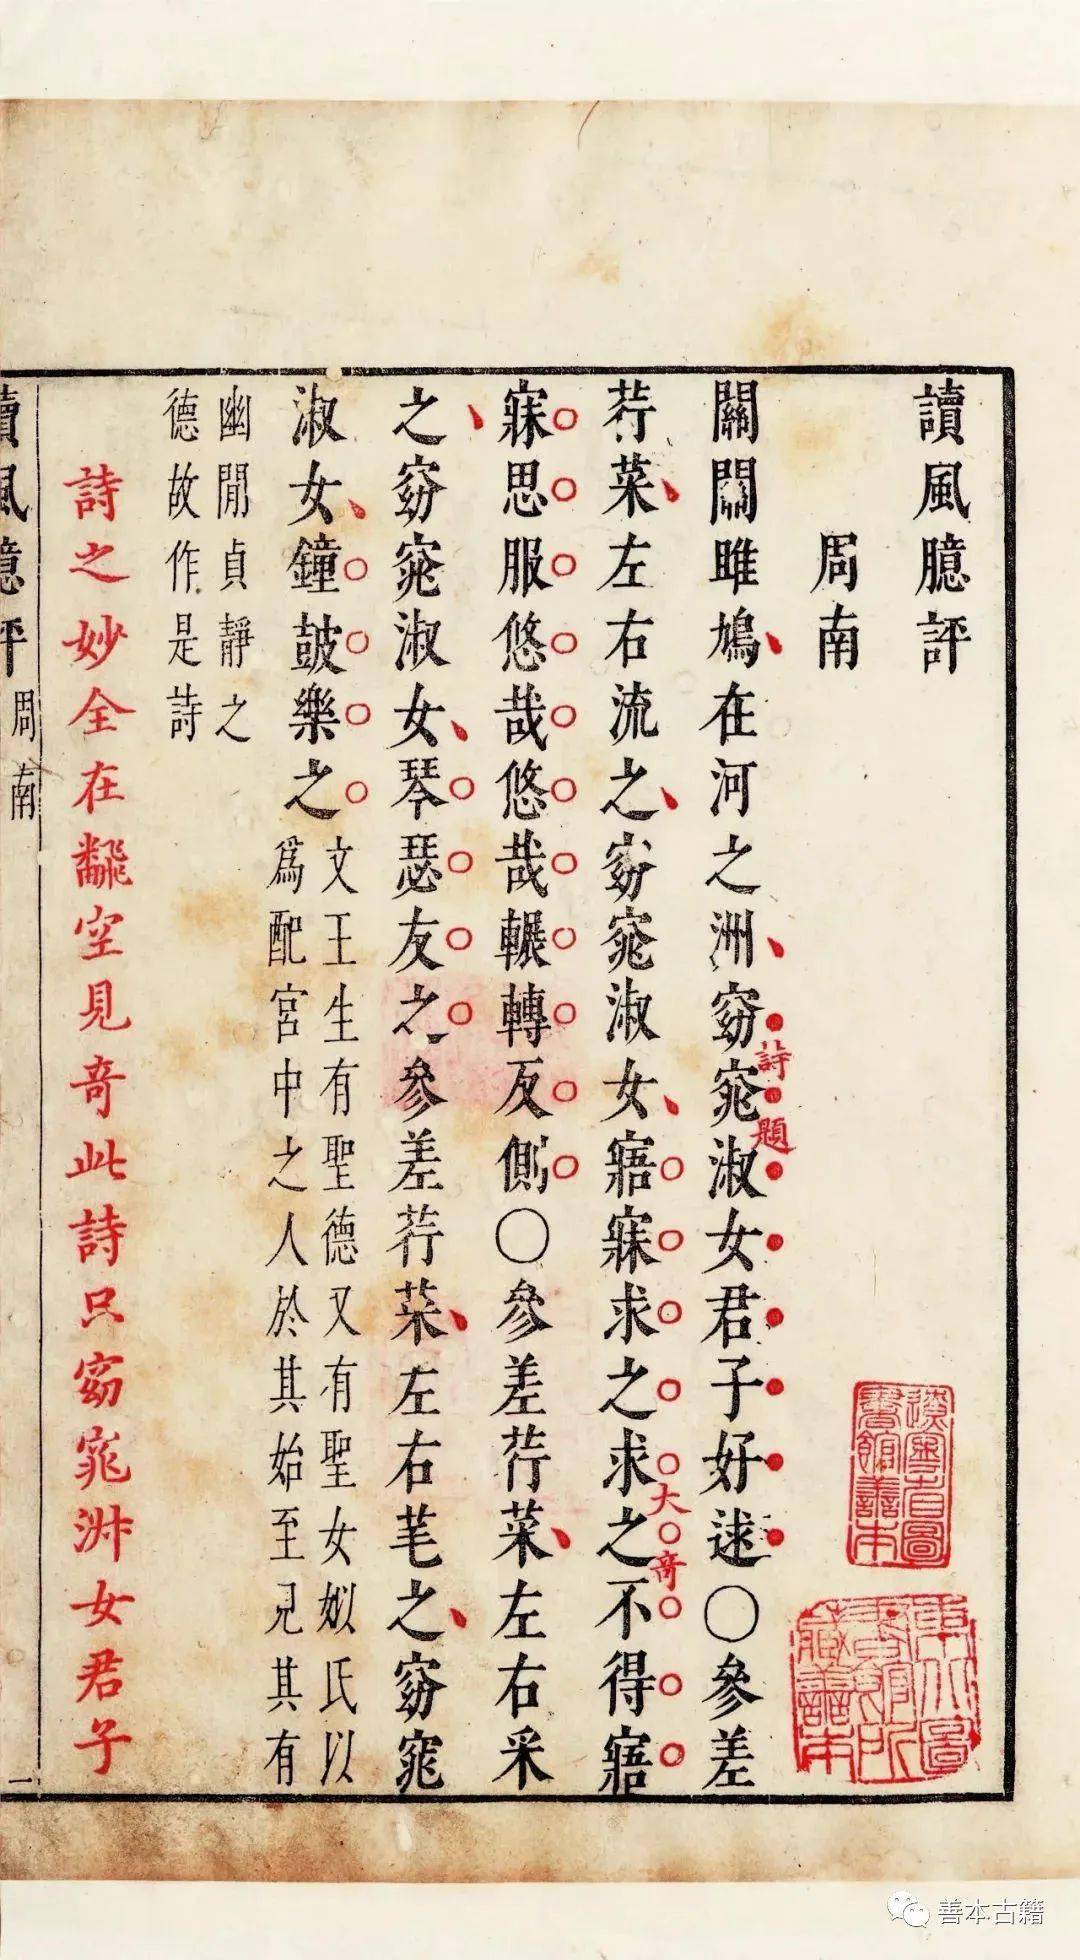 讀風臆評
周南
關關雎鳩在河之洲窈窕淑女君子好逑〇參差
詩題
荇菜左右流之窈窕淑女寤寐求之求之不得寤
大奇
寐思服悠哉悠哉輾轉反側〇參差荇菜左右采
之窈窕淑女琴瑟友之參差荇菜左右芼之窈窕
淑女鐘皷樂之
文王生有聖德又有聖女姒氏以
爲配宮中之人於其始至見其有
幽閒貞靜之
德故作是詩
詩之妙全在飜空見奇此詩只窈窕淑女君子
讀風臆評 周南 一
東北圖書館所藏善本
善本古籍